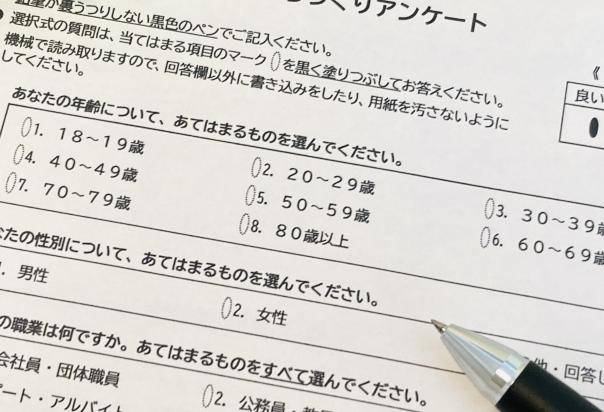 くりアンケート
裏うつりしない黒色のペンでご記入ください。
選択式の質問は、当てはまる項目のマーク を黒く塗りつぶしてお答えください。
機械で読み取りますので、回答欄以外に書き込みをしたり、用紙を汚さないように
してください。
《
良い
あなたの年齢について、あてはまるものを選んでください。
1. 18～19歳
2. 20～29歳
3. 30～39歳
4. 40～49歳
5. 50～59歳
6. 60～69歳
7. 70～79歳
8. 80歳以上
なたの性別について、あてはまるものを選んでください。
1. 男性
2. 女性
他・回答し
の職業は何ですか。あてはまるものをすべて選んでください。
会社員・団体職員
2. 公務員・教
ート・アルバイト